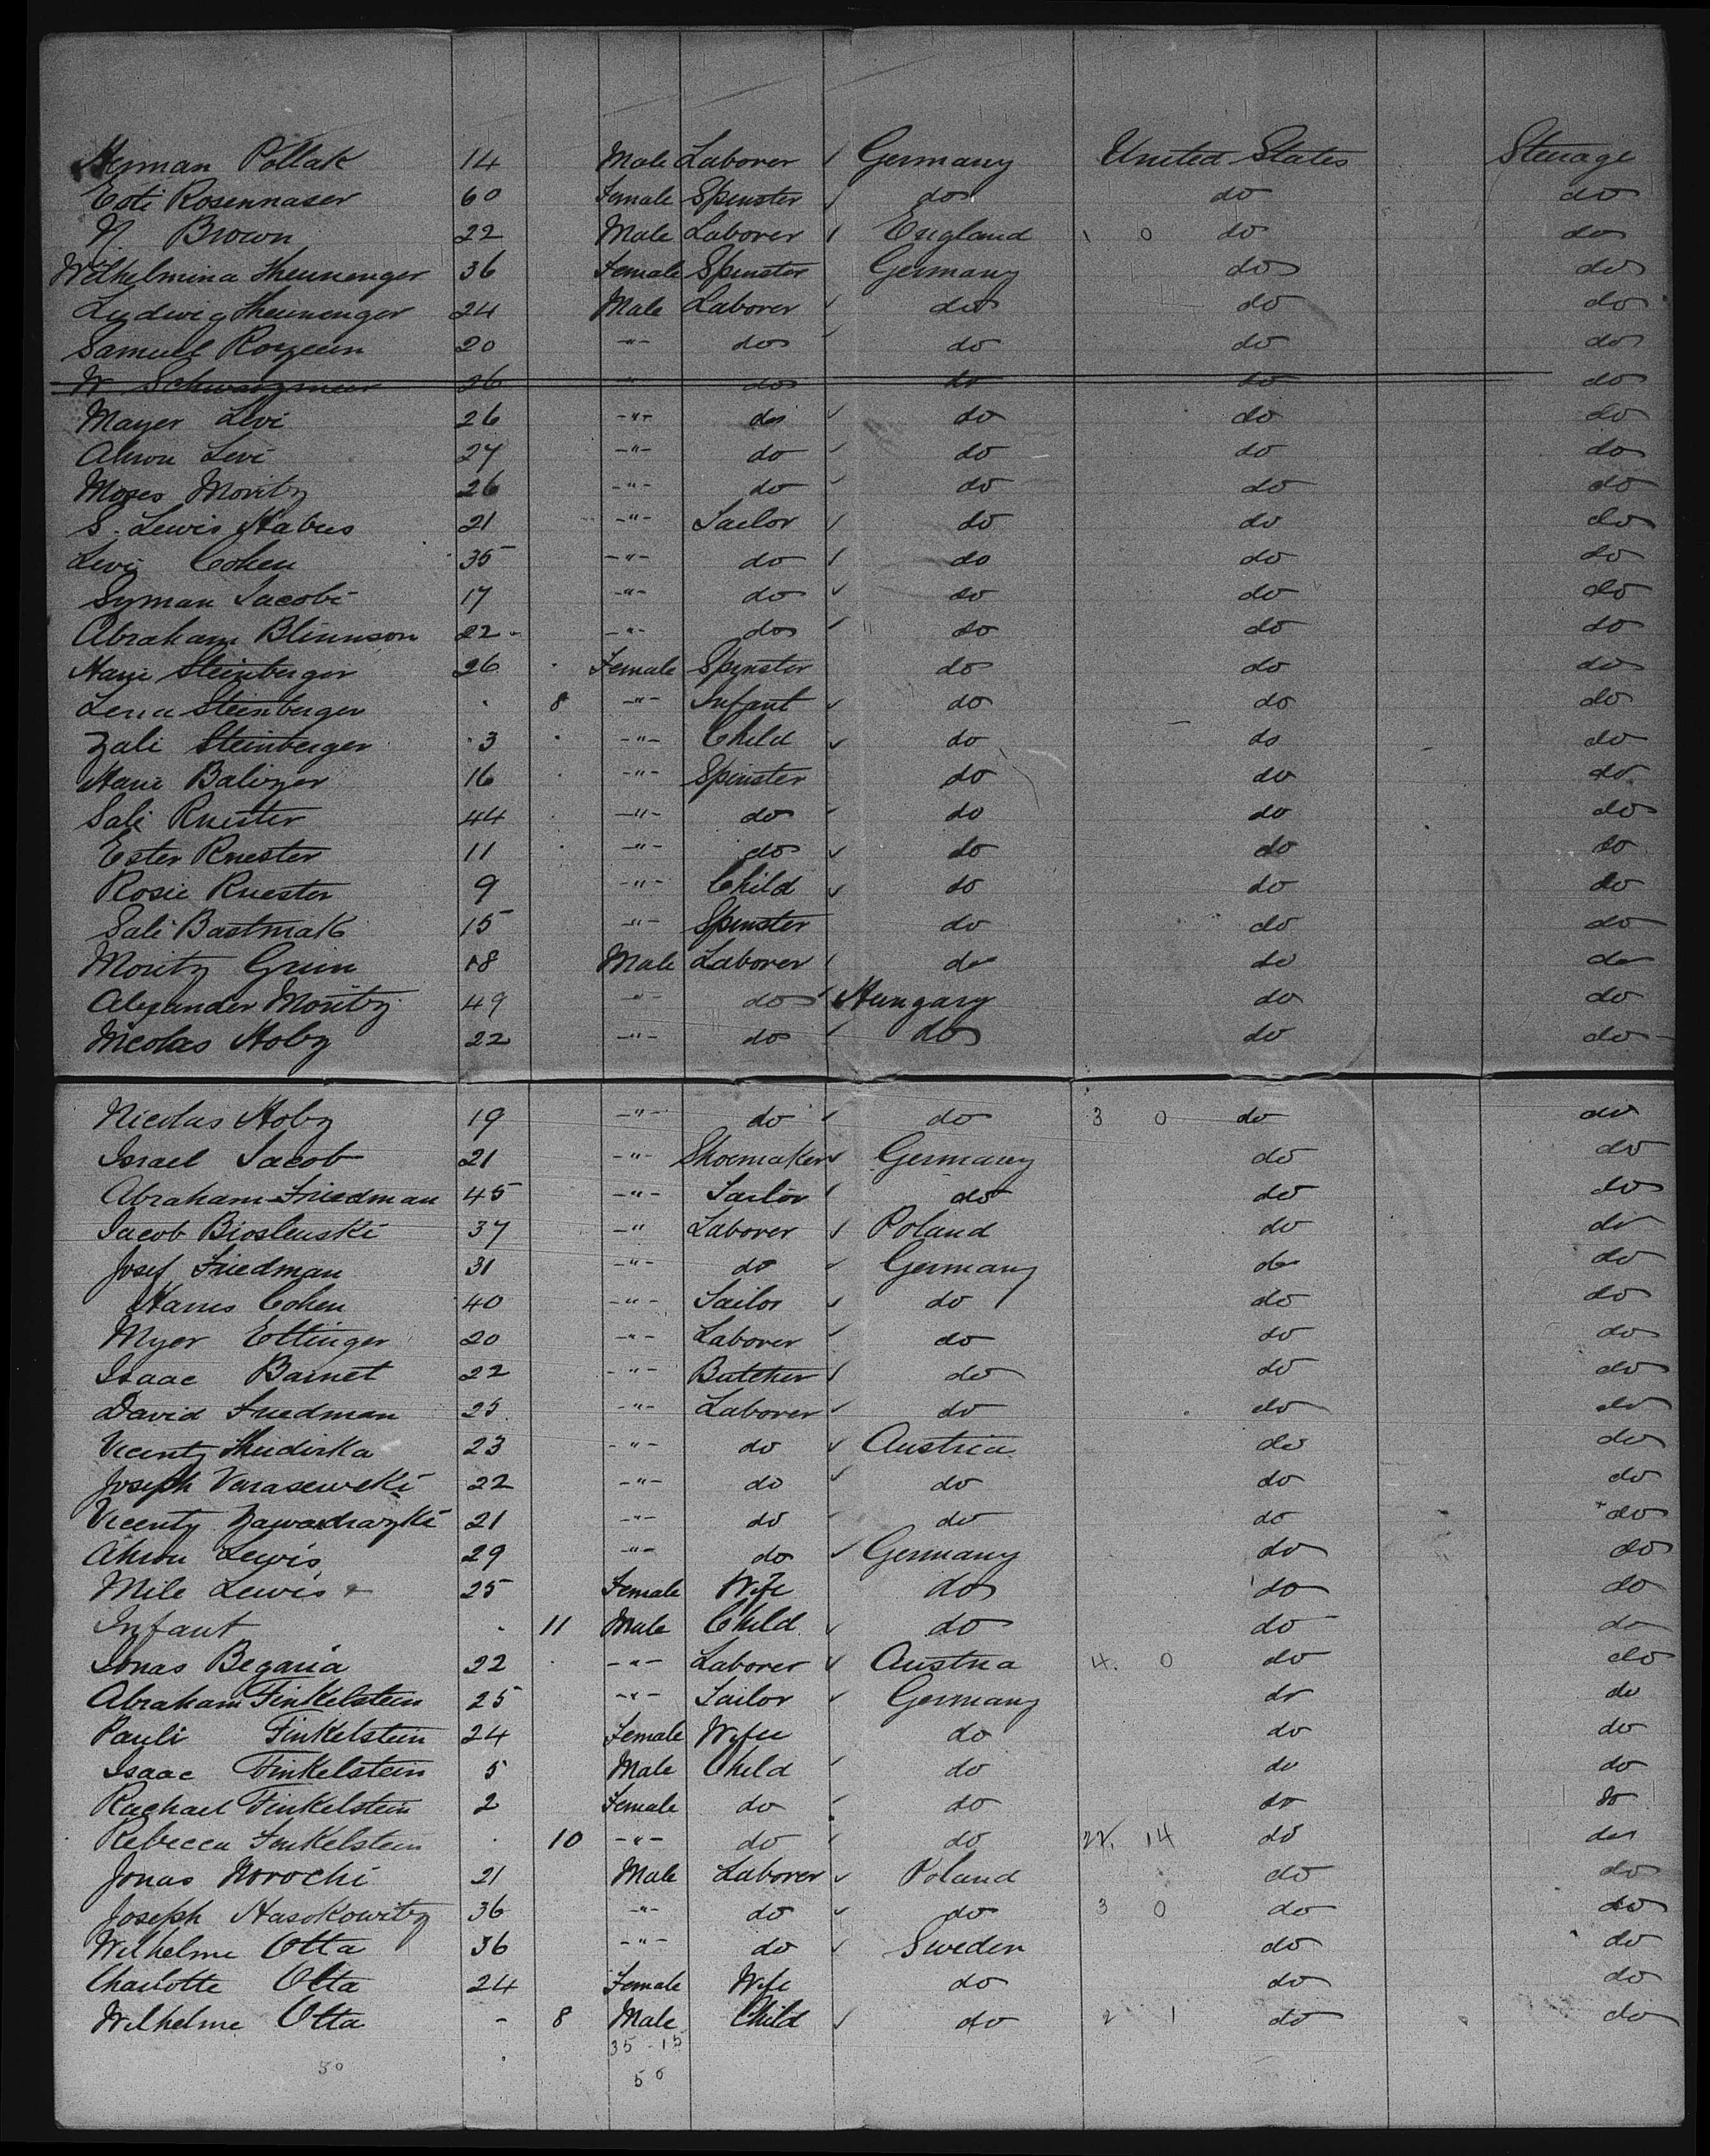 Herman Pollak 14 Male Laborer Germany United States Steerage
Esti Rosennaser 60 Female Spinster do do do
N. Brown 22 Male Laborer England 1 0 do do
Wilhelmina Heunenger 36 Female Spinster Germany do do
Ludwig Heunenger 24 Male Laborer do do do
Samuel 20 -"- do do do do
W 26 " do do do do
Mayer Levi 26 -"- do do do do
Ahron Levi 27 -"- do do do do
Moses Moritz 26 -"- do do do do
S. Lewis 21 -"- Tailor do do do
Levi Cohen 35 -"- do do do do
Syman Jacobi 17 -"- do do do do
Abraham Blinnson 22 -"- do do do do
Hani Steinberger 26 Female Spinster do do do
Lena Steinberger 8 -"- Infant do do do
Zali Steinberger 3 -"- Child do do do
Hani 16 -"- Spinster do do do
Sali Knester 44 -"- do do do do
Ester Knester 11 -"- do do do do
Rosie Knester 9 -"- Child do do do
Sali Bastmak 15 -"- Spinster do do do
Moritz Grün 18 Male Laborer do do do
Alexander Moritz 49 -"- do Hungary do do
Nicolas Holz 22 -"- do do do do
Nicolas Holz 19 -"- do do 3 0 do do
Israel Jacob 21 -"- Shoemaker Germany do do
Abraham Friedman 45 -"- Tailor do do do
Jacob Bioslenski 37 -" Laborer Poland do do
Josef Friedman 31 -"- do Germany do do
Harris Cohen 40 -"- Tailor do do do
Myer Ettinger 20 -"- Laborer do do do
Isaac Barnet 22 -"- Butcher do do do
David Friedman 25 -"- Laborer do do do
Vicenty 23 -"- do Austria do do
Joseph 22 -"- do do do do
Vicenty 21 -"- do do do do
Ahron Lewis 29 -"- do Germany do do
Mile Lewis 25 Female Wife do do do
Infant 11 Male Child do do do
Jonas Begaria 22 -"- Laborer Austria 4. 0 do do
Abraham Finkelstein 25 -"- Tailor Germany do do
Pauli Finkelstein 24 Female Wife do do do
Isaac Finkelstein 5 Male Child do do do
Rachael Finkelstein 2 Female do do do do
Rebecca Finkelstein 10 -"- do do 22. 14 do do
Jonas Norochi 21 Male Laborer Poland do do
Joseph Hasokowitz 36 -"- do do 3 0 do do
Wilhelme Otta 36 -"- do Sweden do do
Charlotte Otta 24 Female Wife do do do
Wilhelme Otta - 8 Male Child do 2 1 do do
35 - 15
50 50